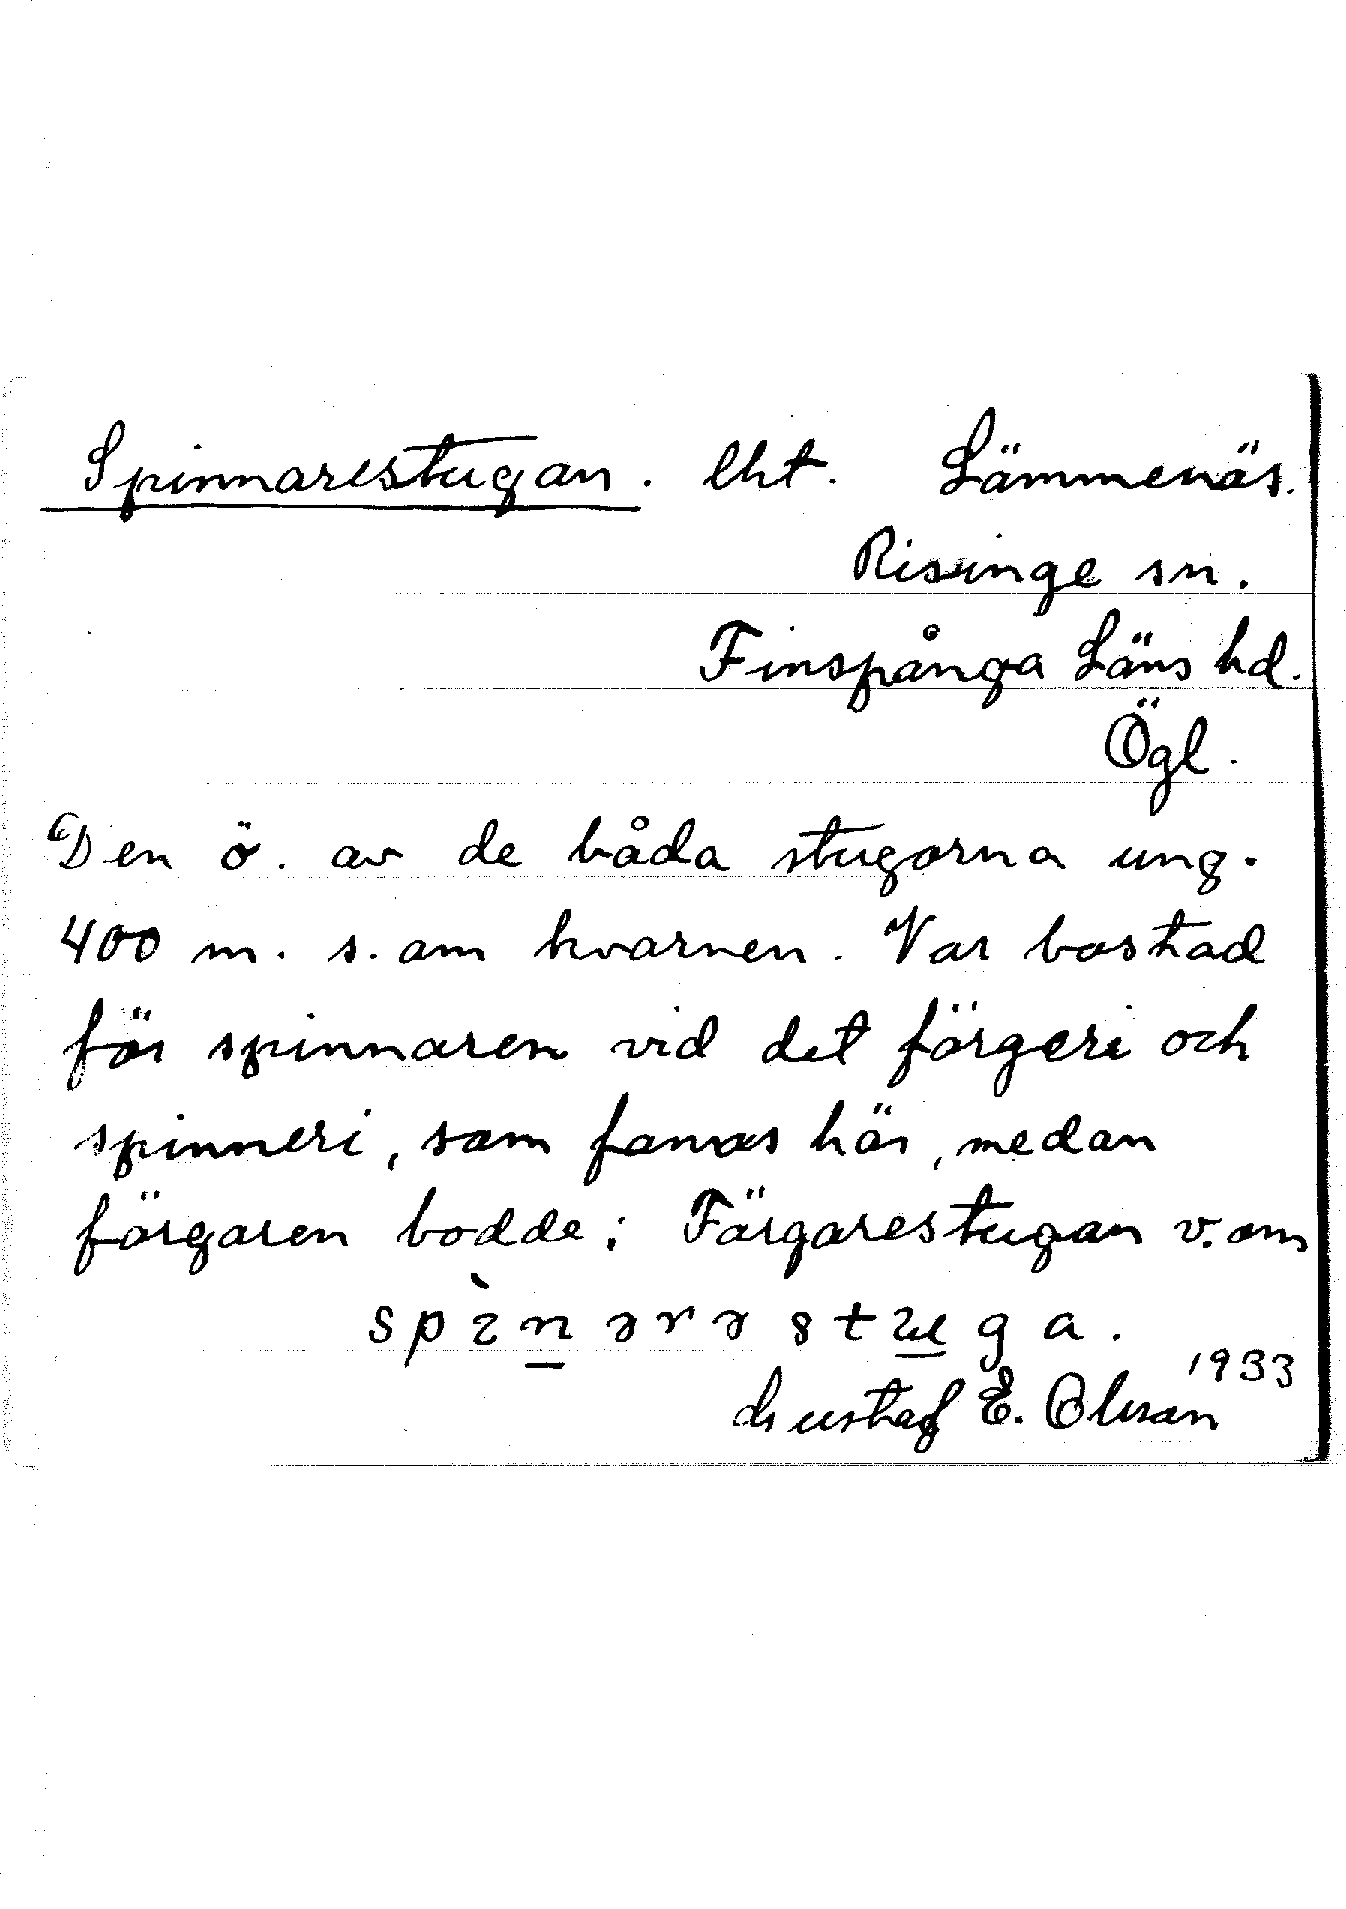 Spinnarestugan. lht. Lämmenäs.
Risinge sn.
Finspånga Läns hd.
Ögl.
Den ö. av de båda stugorna ung.
400 m. s. om kvarnen. Var bostad
för spinnaren vid det färgeri och
spinneri, som fanns här, medan
färgaren bodde i Färgarestugan v. om
spìn̲ərəstu̲ga.
1933
Gustaf E. Olsson